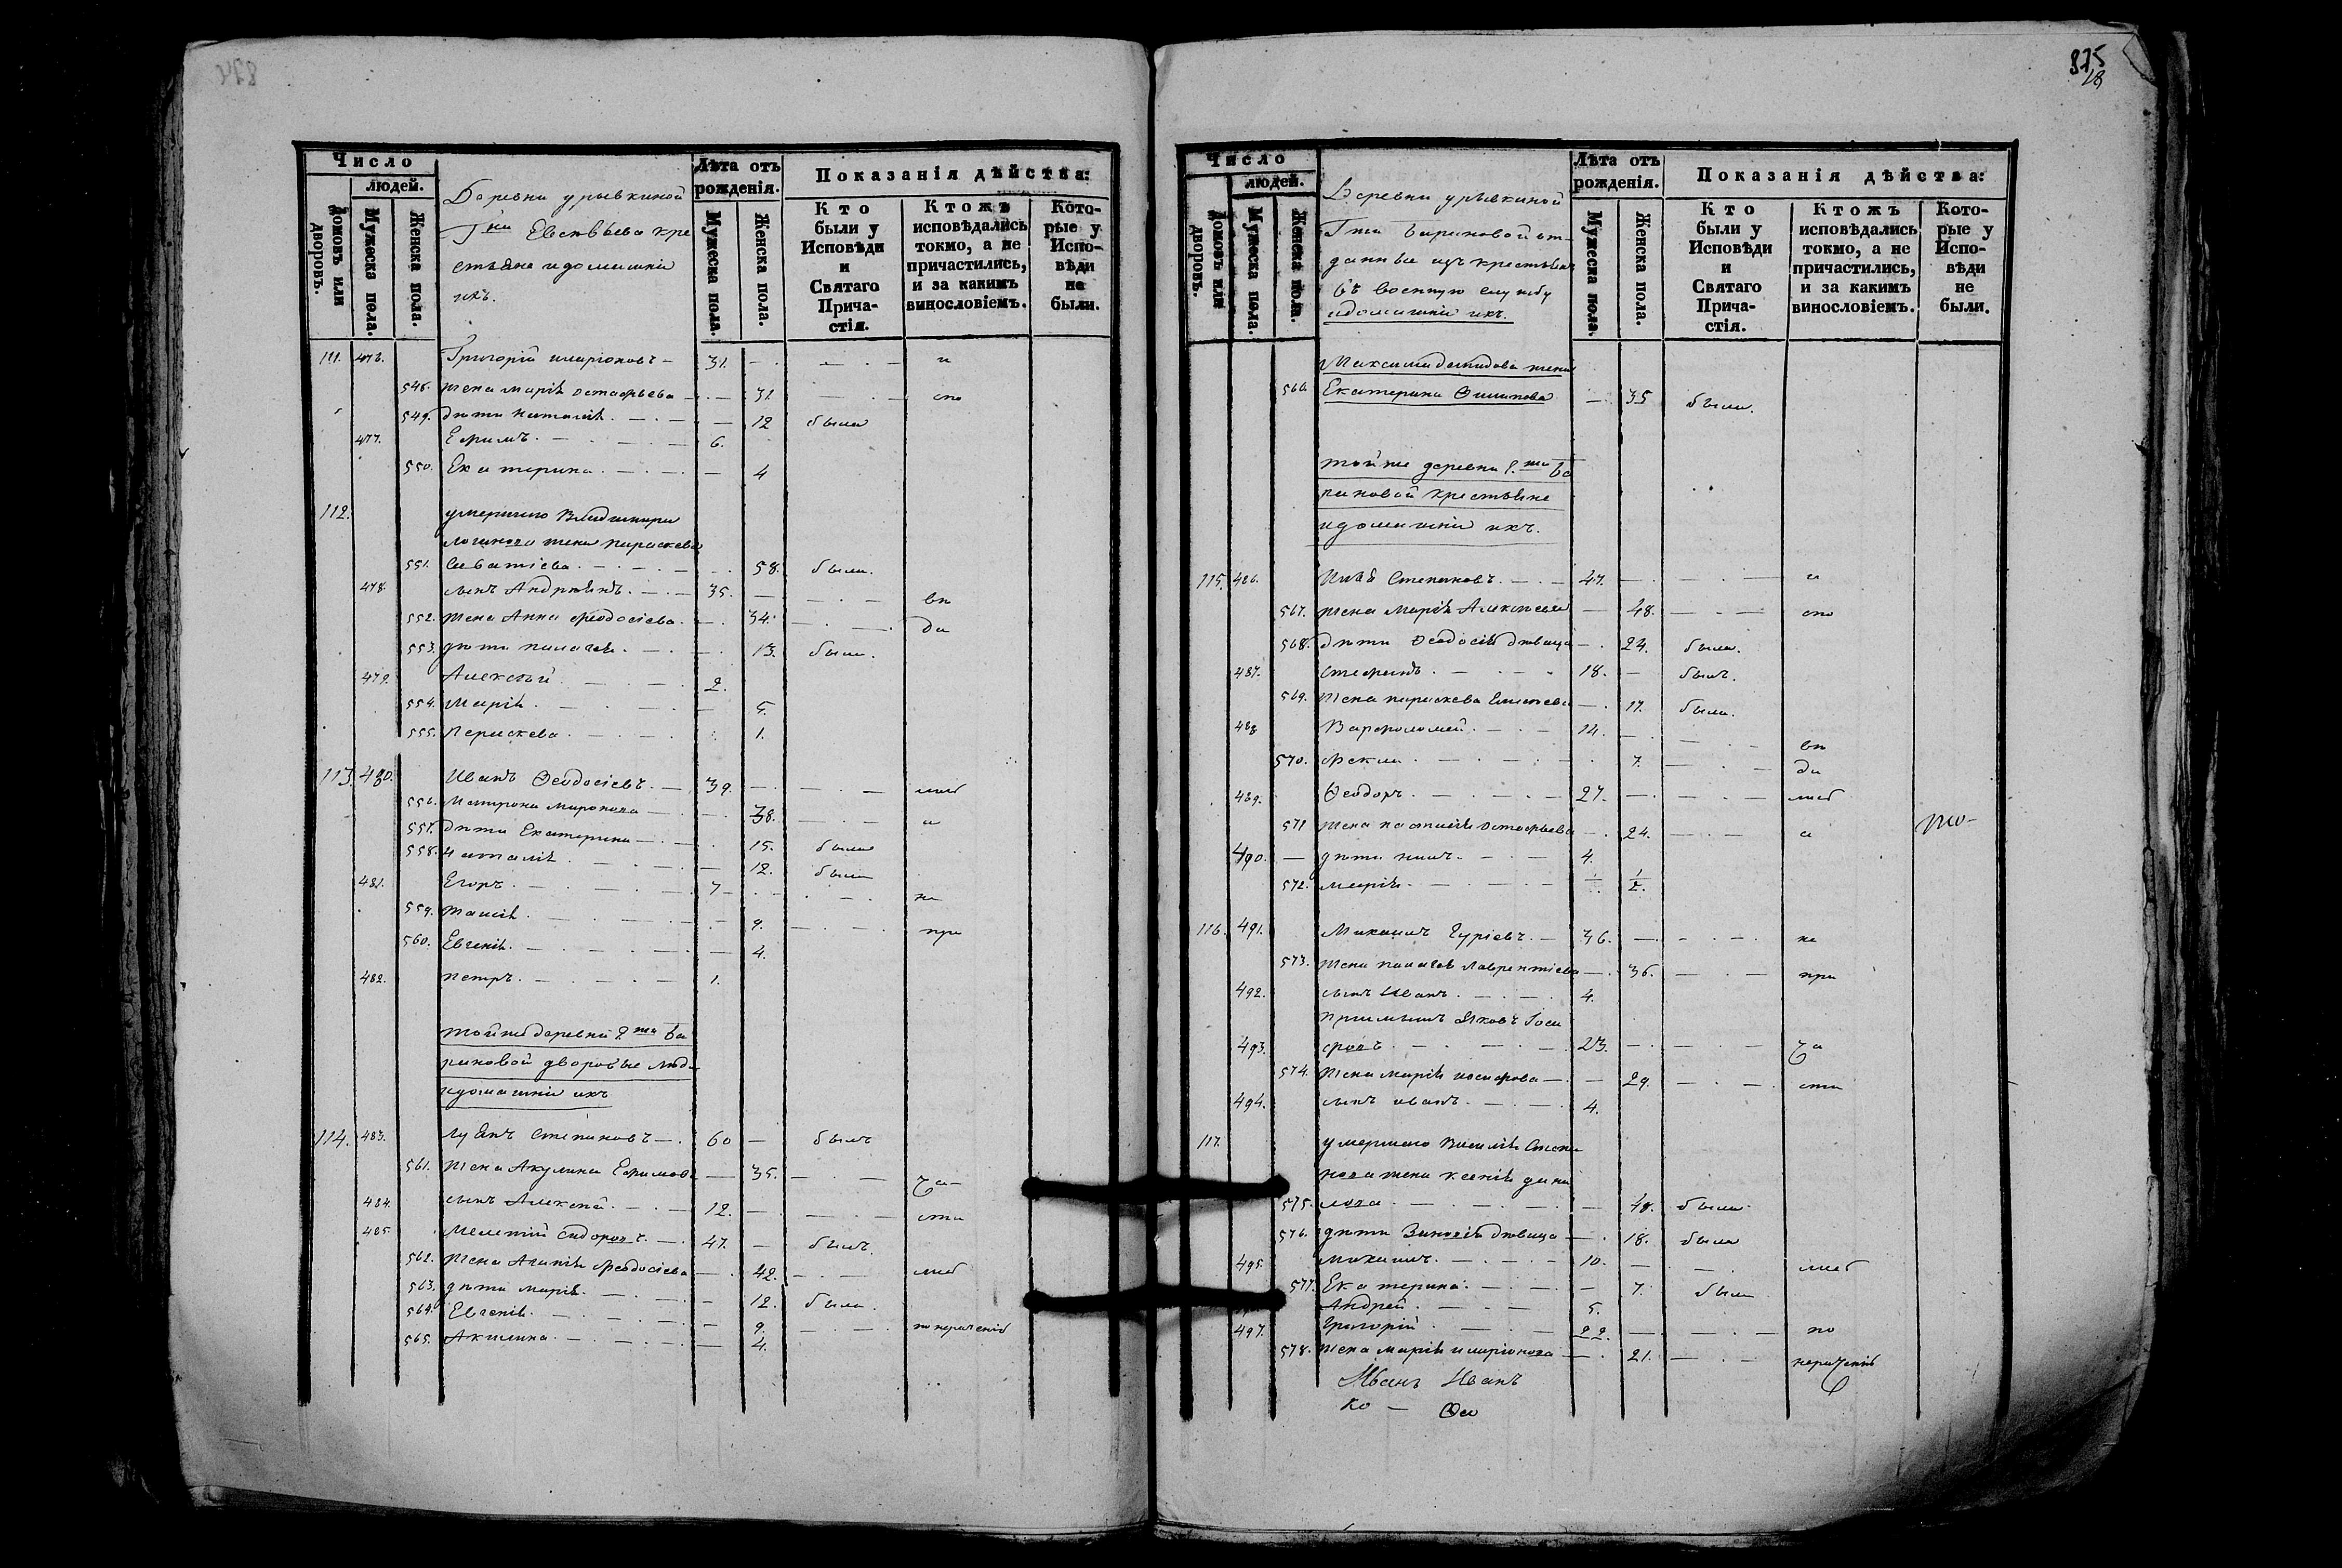 875
18
Число
людей.
Домовъ или дворовъ.
Мужеска пола.
Женска пола.
Деревни урывкиной
Гна Евсевьева кре
стьяне идомашніи
ихъ.
Лѣта отъ рожденія.
Мужеска пола.
Женска пола.
Показанія дѣйства:
Кто были у Исповѣди и Святаго Прича-стія.
Ктожъ исповѣдались токмо, а не причастились, и за какимъ винословіемъ.
Кото-рые у Испо-вѣди не были.
111. 476. Григорій иларіоновъ — 31. и
548. жена марія остафьева 31 спо
549. дѣти наталія 12 была
477. Ефимъ 6.
550. Екатерина 4
112. умершаго Владимира
логинова жена параскева
551. Савватіева 58. была.
478. сынъ Андріянъ 35. вѣ
552. жена Анна феодосіева 34. да
553. дѣти пелагея 13. была.
479. Алексѣй 2.
554. Марія 5.
555. Параскева 1.
113. 480. Иванъ Ѳеодосіевъ 39. лис
556. Матрона миронова 38. а
557. дѣти Екатерина 15. была
558. наталія 12. была
481. Егоръ 7 не
559. 9. при
560. Евгенія 4.
482. петръ 1.
тойже деревни Г.жи Ба
риновой дворовые люди
идомашніи ихъ
114. 483. Степановъ 60 былъ
561. жена Акулина Ефимова 35. ча
484. сынъ Алексѣй 12. сти
485. Мелетій Сидоровъ 47. былъ.
562. жена Агапія феодосіева 42. лис
563. дѣти марія 12. была.
564. Евгенія 9. понераченію
565. Акилина 4.
Число
людей.
Домовъ или дворовъ.
Мужеска пола.
Женска пола.
Деревни урывкиной
Гжи Бариновой от
данные изъ крестьянъ
въ военную службу
идомашніи ихъ.
Лѣта отъ рожденія.
Мужеска пола.
Женска пола.
Показанія дѣйства:
Кто были у Исповѣди и Святаго Прича-стія.
Ктожъ исповѣдались токмо, а не причастились, и за какимъ винословіемъ.
Кото-рые у Испо-вѣди не были.
Максима демидова жена
566. Екатерина Филипова 35 была.
тойже деревни Г.жи Ба
риновой крестьяне
идомашніи ихъ.
115. 486. Степановъ 47. и
567. жена Марія Алексѣева 48. спо
568. дѣти Ѳеодосія дѣвица 24. была.
487. Стефанъ 18. былъ.
569. Жена параскева 17. была.
488 Варфоломей 14. вѣ
570. Фекла 7. да
489. Ѳеодоръ 27. лис
571 жена настасія остафьева 24. а
490. дѣти нилъ 4.
572. марія 1/2.
116. 491. Михаилъ Гуріевъ 36. не
573. жена пелагея лаврентіева 36. при
492. сынъ Иванъ 4.
пріемышъ Яковъ Іоси
493. фовъ 23. ча
574. жена марія иосифова 29. сти
494. сынъ иванъ 4.
117. умершаго Василія Степа
нова жена ксенія дани
575. лова 48. была
576. дѣти Зиновія дѣвица 18. была
495. михаилъ 10. лис
577. Екатерина 7. была
Андрей 5.
497. Григорій 22. по
578. жена марія иларіонова 21. нераченію
Иванъ